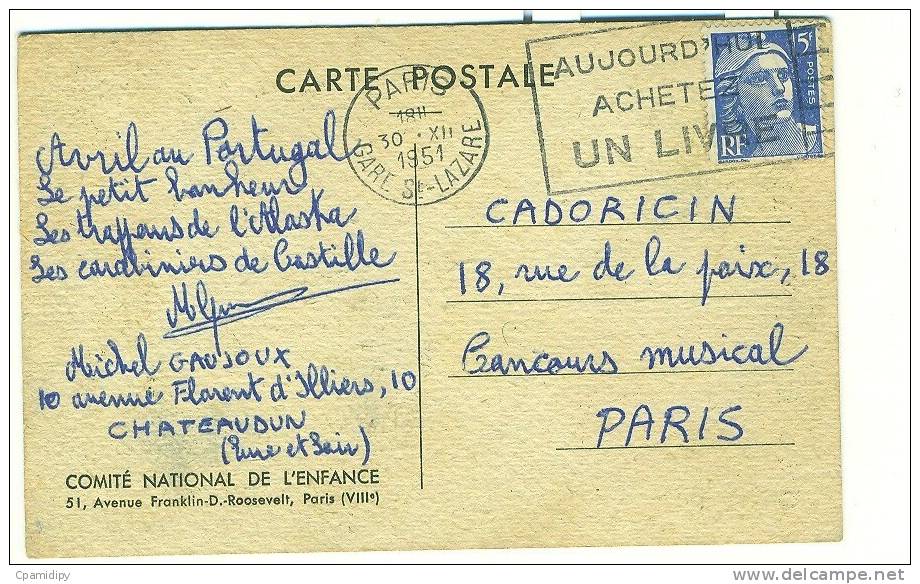 CARTE POSTALE
PARIS
18H
30 · XII
1951
GARE St-LAZARE
AUJOURD'HUI
ACHETEZ
UN LIVRE
15F
POSTES
RF
Avril au Portugal
Le petit bonheur
Les trappeurs de l'Alaska
Les carabiniers de Castille
Michel GAUJOUX
10 avenue Florent d'Illiers, 10
CHATEAUDUN
(Eure et Loir)
COMITÉ NATIONAL DE L'ENFANCE
51, Avenue Franklin-D.-Roosevelt, Paris (VIIIe)
CADORICIN
18, rue de la paix, 18
Concours musical
PARIS
Cpamidipy
delcampe.net